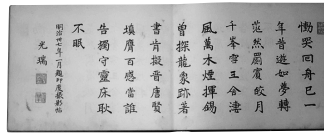 慟哭回舟已一
年昔遊如夢轉
茫然罽賓皎月
千峯雪五台凄
風萬木煙揮錫
曾探龍象跡著
書肯擬晉唐賢
填膺百感當誰
告獨守靈床耿
不眠
明治卅七年一月題印度撮影帖
光瑞